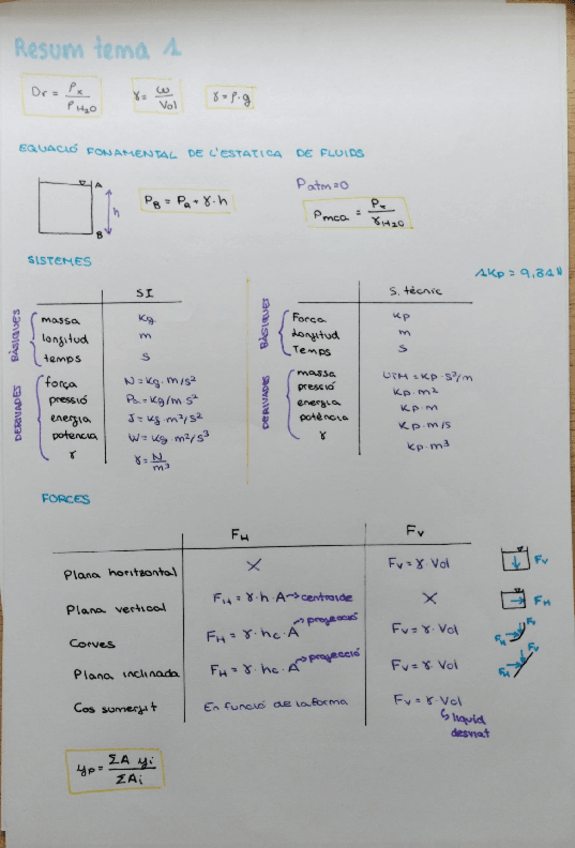 Resum tema 1
Dr = ρx / ρH2O    γ = ω / Vol    γ = ρ · g
EQUACIÓ FONAMENTAL DE L'ESTATICA DE FLUIDS
A
h
B
PB = Pa + γ · h
Patm = 0
Pmca = Px / γH2O
SISTEMES
1Kp = 9,81N
SI
BÀSIQUES
massa Kg
longitud m
temps s
DERIVADES
força N = Kg · m/s²
pressió Pa = Kg/m·s²
energia J = Kg · m²/s²
potencia W = Kg · m²/s³
γ γ = N / m³
S. tècnic
BÀSIQUES
Força Kp
Longitud m
Temps s
DERIVADES
massa UTM = Kp · s²/m
pressió Kp · m²
energia Kp · m
potència Kp · m/s
γ Kp · m³
FORCES
FH FV
Plana horitzontal X FV = γ · Vol FV
Plana vertical FH = γ · h · A → centroide X FH
Corves FH = γ · hc · A → projecció FV = γ · Vol FH FV
Plana inclinada FH = γ · hc · A → projecció FV = γ · Vol FH FV
Cos sumergit En funció de la forma FV = γ · Vol
↳ liquid
desviat
yp = ΣA yi / ΣAi